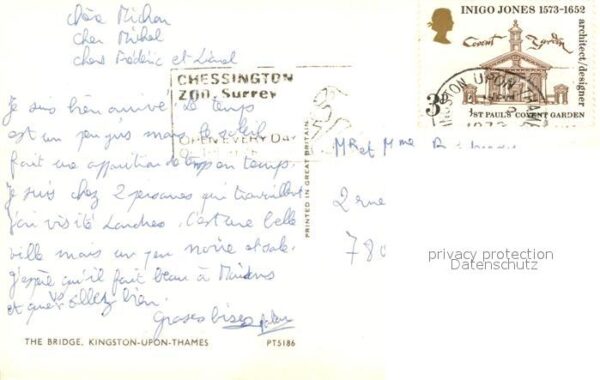 chère Michou
cher Michel
chers Frédéric et Lionel
Je suis bien arrivé. Le temps
est un peu gris mais le soleil
fait une apparition de temps en temps.
Je suis chez 2 personnes qui travaillent
j'ai visité Londres. C'est une belle
ville mais un peu noire et sale.
J'espère qu'il fait beau à
et que vs allez bien.
Grosses bises
THE BRIDGE, KINGSTON-UPON-THAMES PT5186
CHESSINGTON
ZOO, Surrey
OPEN EVERY DAY
PRINTED IN GREAT BRITAIN
INIGO JONES 1573-1652
architect/designer
Covent Garden
3p
ST PAUL'S COVENT GARDEN
KINGSTON UPON THAMES
Mr et Mme
2 rue
780
privacy protection
Datenschutz